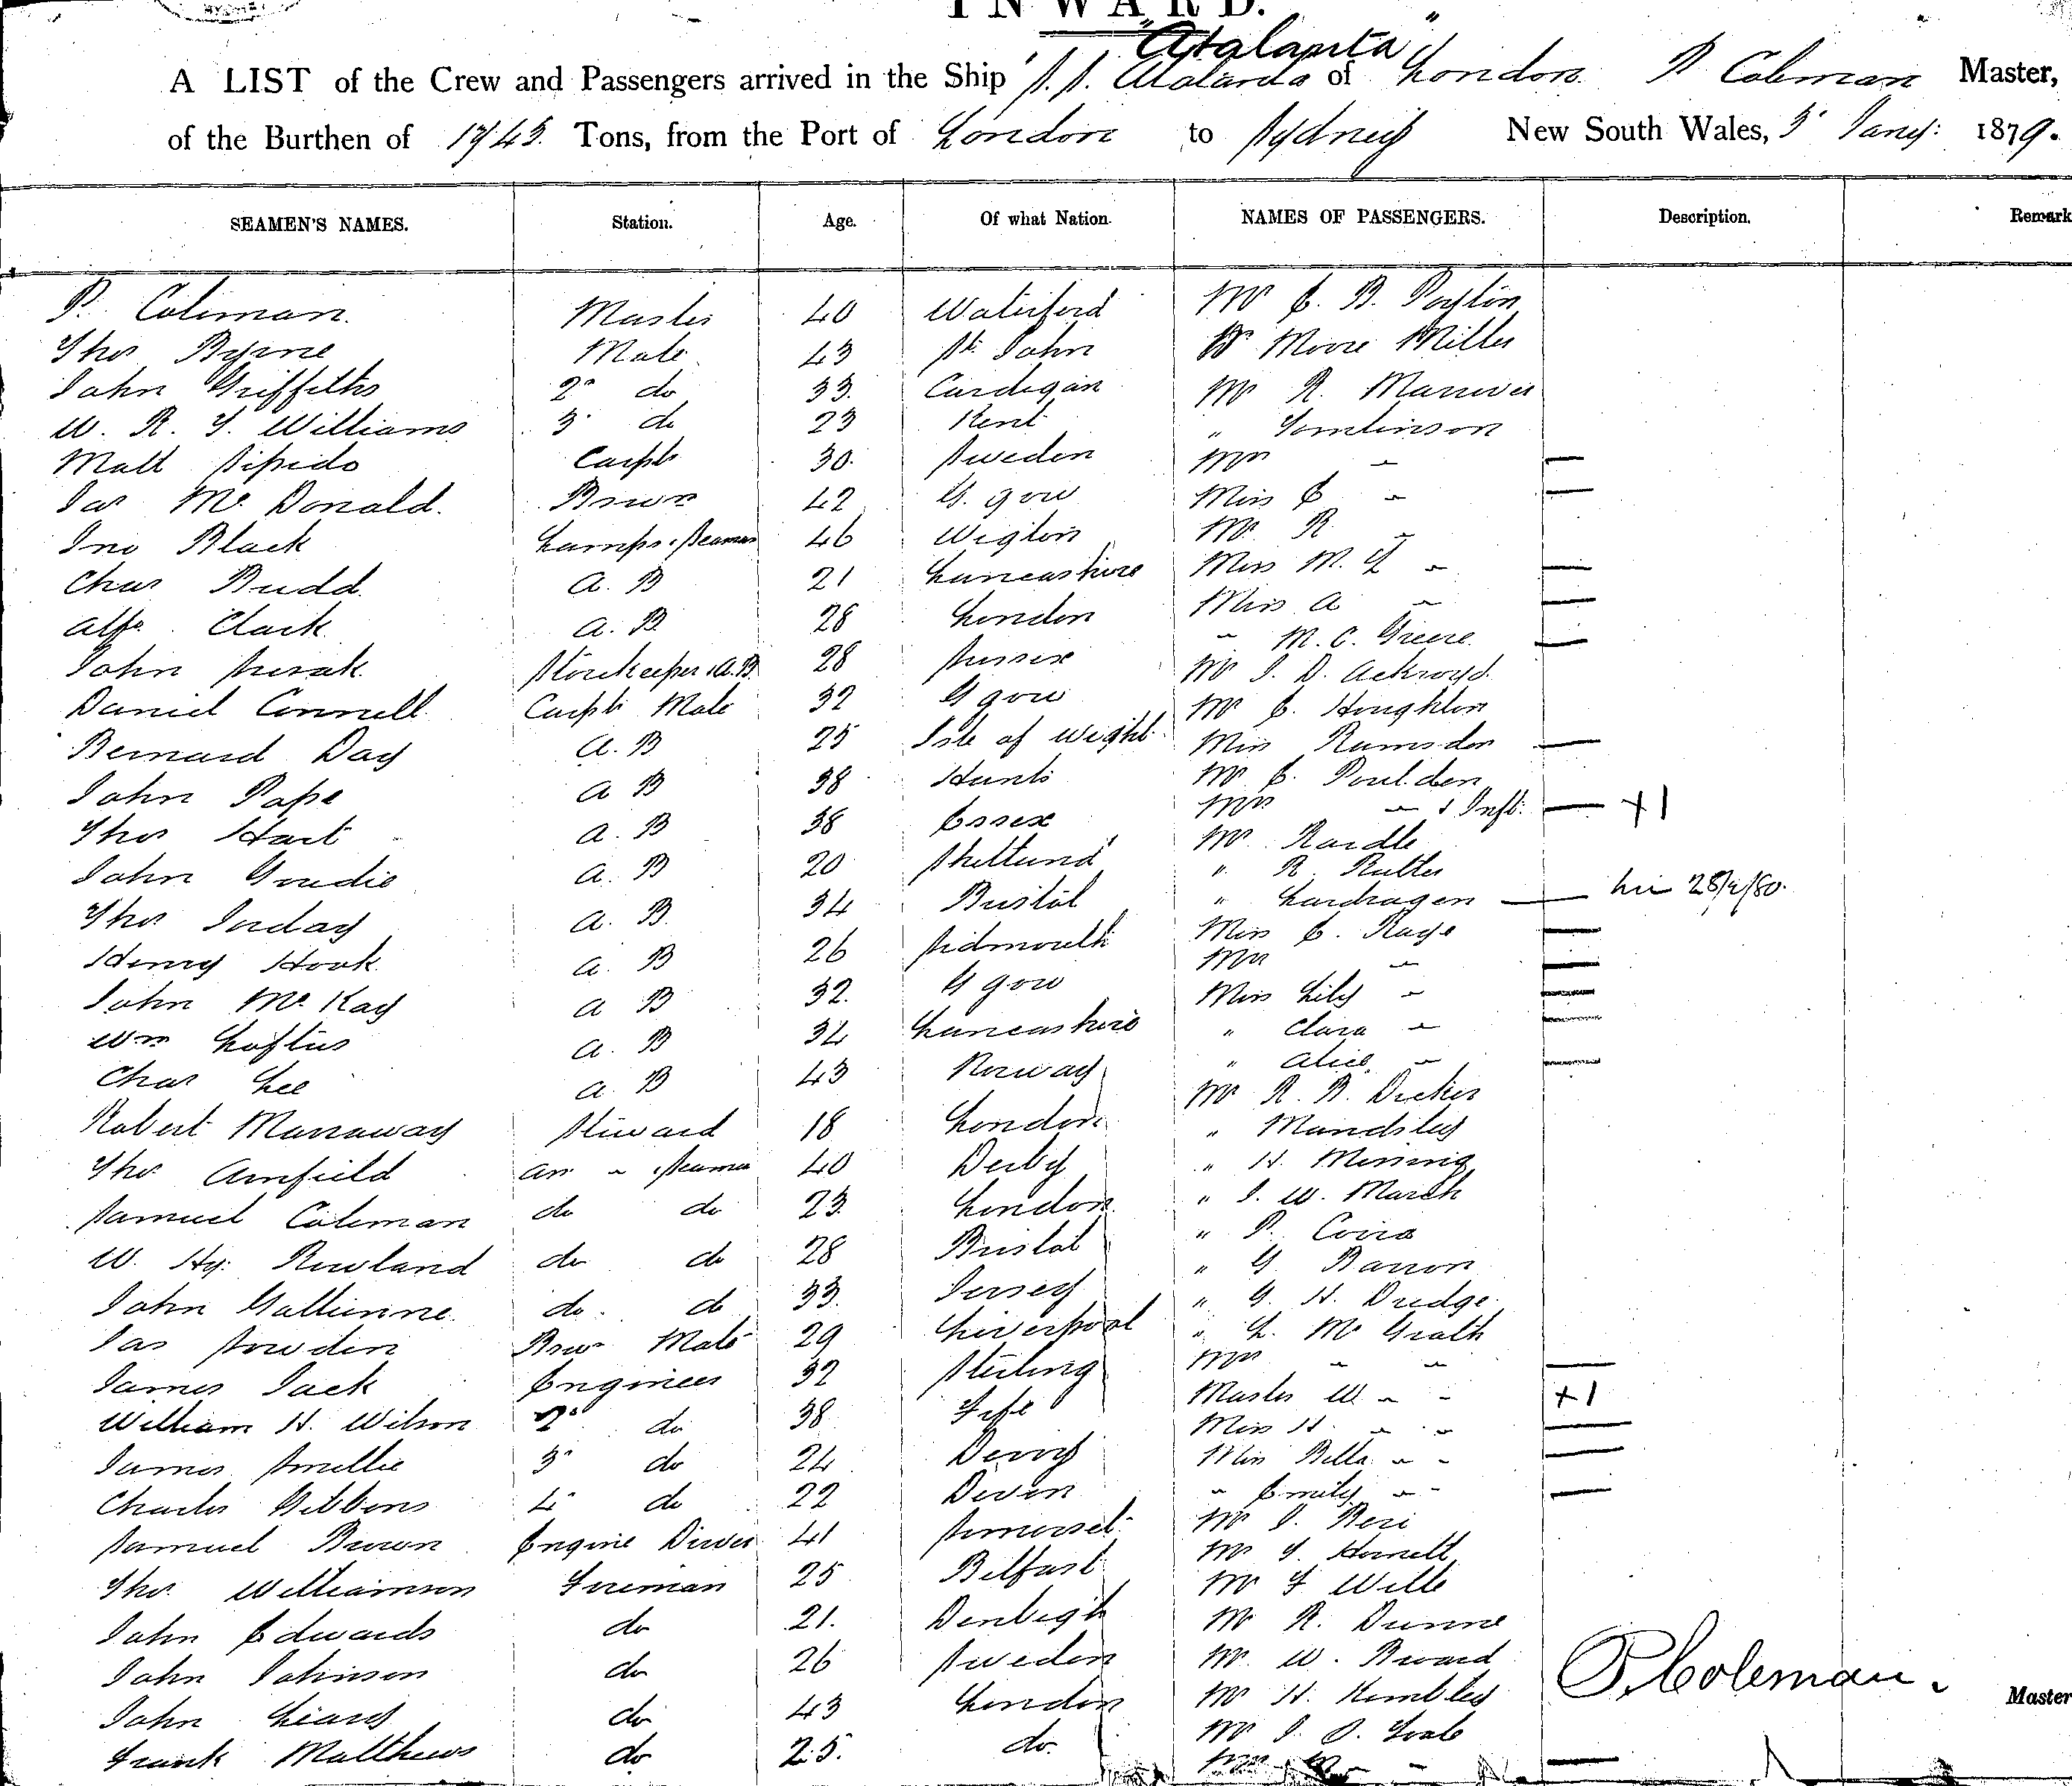 INWARD.
"Atalanta"
A LIST of the Crew and Passengers arrived in the Ship S.S. Atalanta of London P Coleman Master,
of the Burthen of 1745 Tons, from the Port of London to Sydney New South Wales, 5 Jany: 1879.
SEAMEN'S NAMES. Station. Age. Of what Nation. NAMES OF PASSENGERS. Description. Remark
P. Coleman. Master 40 Waterford Mr E. B.
Thos Byrne Mate 43 St. John Dr Moore Miller
John Griffiths 2d do 33. Cardigan Mr R.
W. R. T. Williams 3d do 23 Kent " Tomlinson
Matt Carptr 30. Sweden Mrs "
Jas McDonald. Bswn 42 G. gow Miss E "
Jno Black Lamps & Seaman 46 Wigton Mr. R "
Chas Budd A. B 21 Lancashire Miss M. J "
Alfr. Clark A. B. 28 London Miss A "
John Storekeeper & A.B. 28 Sussex " M. C. Greere
Daniel Connell Carptr Mate 32 G gow Mr J. D. Ackroyd.
Bernard Day A. B 25 Isle of Wight Mr E. Houghton
John Pape A B 38 Hants Miss Ramsden
Thos Hart A. B 38 Essex Mr E. Poulden
Mrs " & Inft. + 1
John Goudie A. B 20 Shetland Mr. Rardle
Thos A. B. 34 Bristol " R. Rutter
Henry Hook A. B 26 Sidmouth " Lardragen 28/4/80.
John McKay A B 32. G gow Miss E. Kaye
Wm Loftus A. B 34 Lancashire Mrs "
Chas Lee A. B 43 Norway Miss Lily "
" Clara "
" Alice "
Robert Manaway Steward 18 London Mr R. B. Dicker
Thos Amfield An " Seaman 40 Derby " Mandsley
Samuel Coleman do do 23. London " H.
W. Hy. Rowland do do 28 Bristol " J. W. March
John Gallienne. do. do 33. Jersey " P.
Jas Sowden Bswn Mate 29 Liverpool " G. Barron
James Jack Engineer 32 Stirling " G. H. Dudge
William H. Wilson 2d do 38 Fife " L. McGrath
James Smellie 3d do 24 Derry Mrs " "
Charles Gibbons 4 do 22 Devon Master W " " + 1
Samuel Brown Engine Driver 41 Somerset Miss H. " "
Thos. Williamson Fireman 25 Belfast Miss Bella " "
John Edwards do 21. Denbigh " Emily " "
John Johnson do 26 Sweden Mr J.
John Leary do 43 London Mr T. Hornett
Frank Matthews do 25. do. Mr F Wills
Mr R. Dunne
Mr. W.
Mr H. Kembley
Mr J. O.
P. Coleman.
Master